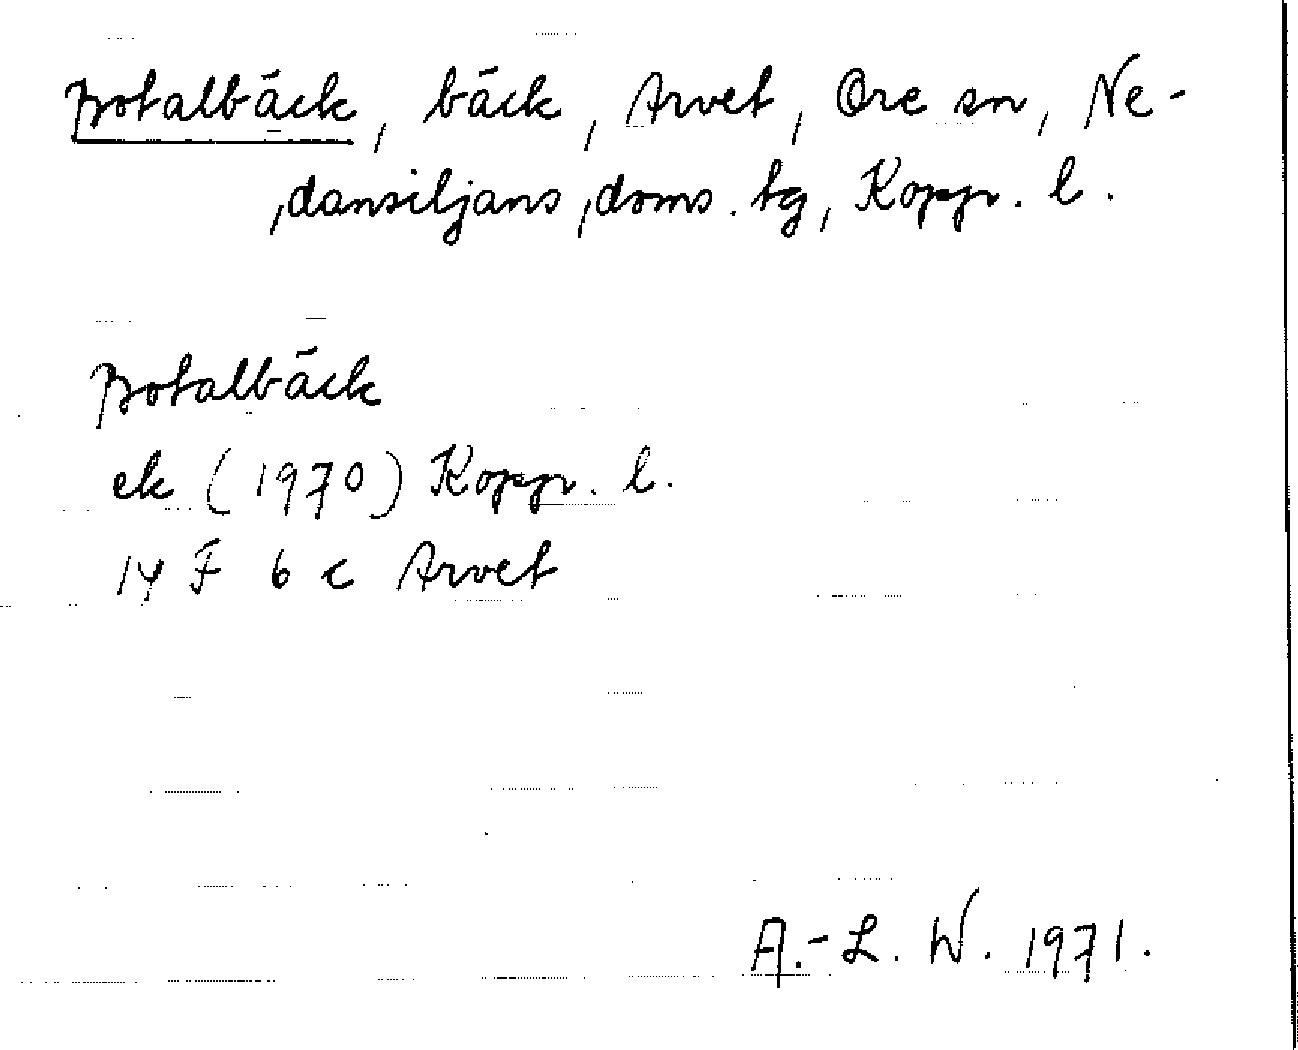 Botalbäck, bäck, Arvet, Ore sn, Ne-
dansiljans doms. tg, Koppr. l.
Botalbäck
ek (1970) Koppr. l.
14 F 6 c Arvet
A.-L. W. 1971.